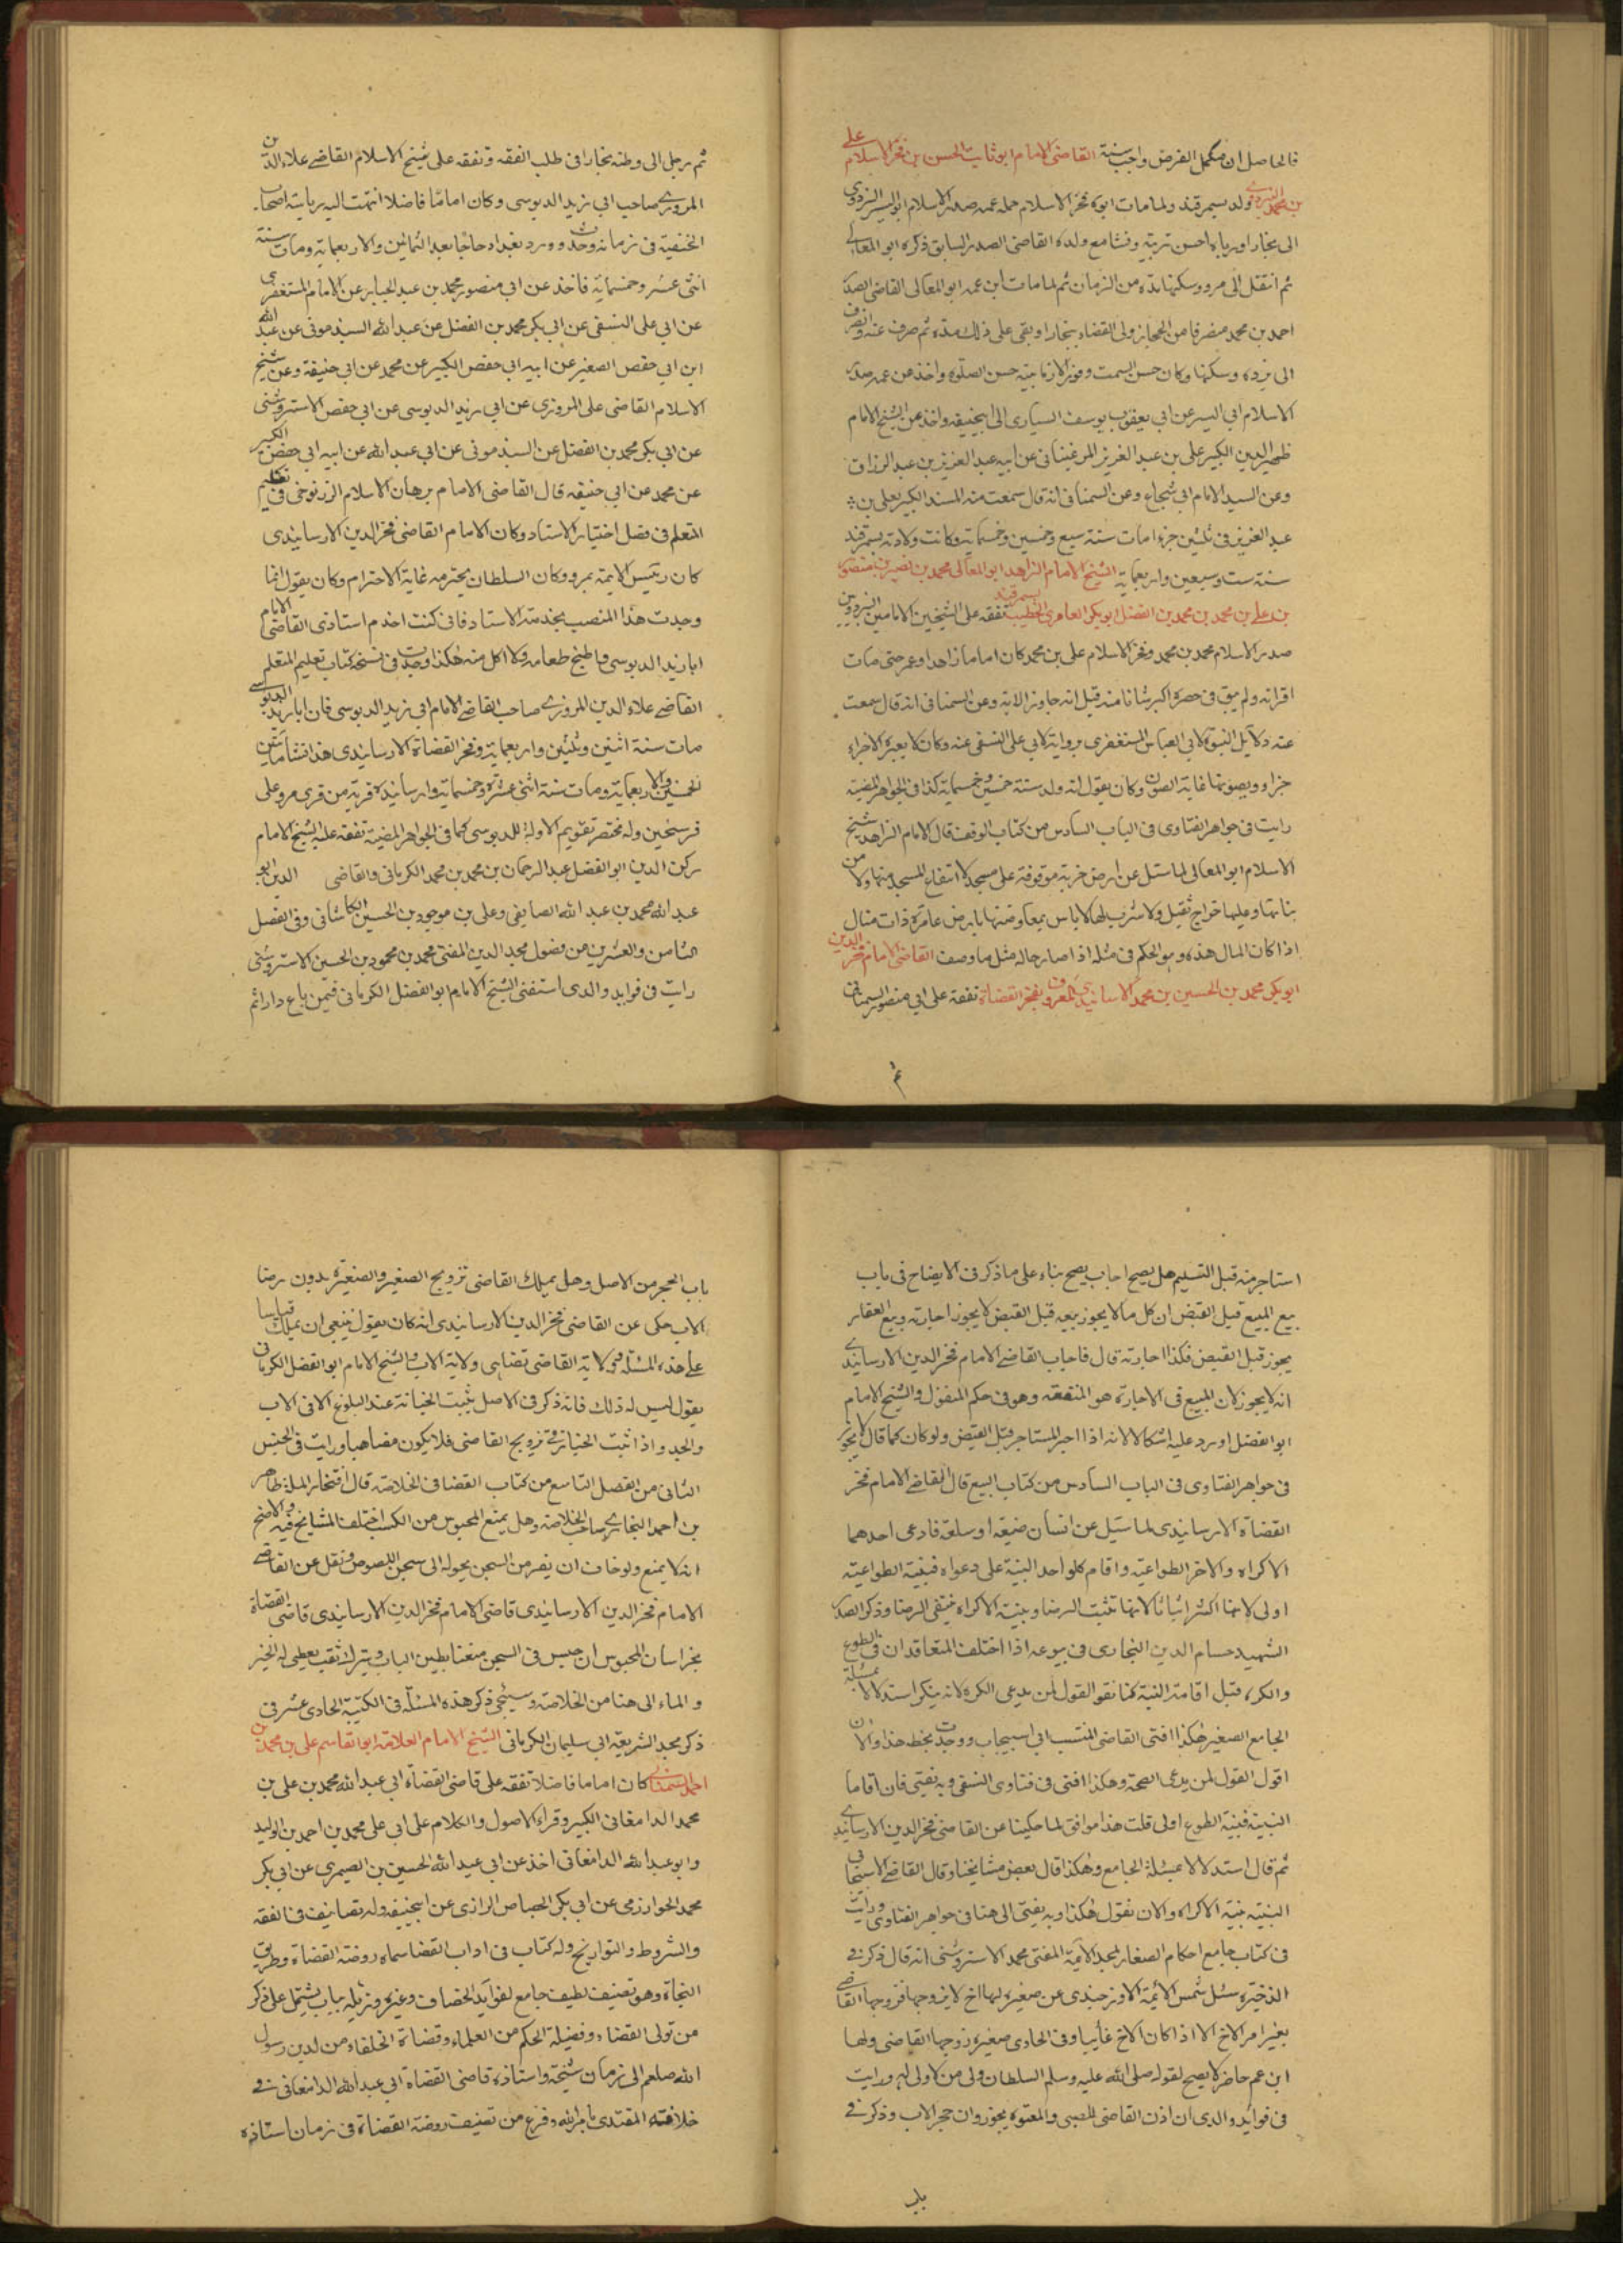 فالحاصل ان مكمل الفرض واجب سنة القاضى الامام ابو ثابت الحسن بن فخر الاسلام على
بن محمد البزدوى ولد بسمرقند ولما مات ابوه فخر الاسلام حمله عمه صدر الاسلام ابو اليسر البزدوى
الى بخارا ورباه احسن تربية ونشا مع ولده القاضى الصدر السابق ذكره ابو المعالى
ثم انتقل الى مرو وسكنها مدة من الزمان ثم لما مات ابن عمه ابو المعالى القاضى الصدر
احمد بن محمد منصرفا من الحجاز ولى القضاء ببخارا وبقى على ذلك مدة ثم صرف عنه وانصرف
الى بزده وسكنها وكان حسن السمت وفور الازمانية حسن الصلوة واخذ عن عمه صدر
الاسلام ابى اليسر عن ابى يعقوب يوسف السيارى الى ابيحنيفه واخذ عن الشيخ الامام
ظهير الدين الكبير على بن عبد العزيز المرغينانى عن ابيه عبد العزيز بن عبد الرزاق
وعن السيد الامام ابى شجاع وعن السمنانى انه قال سمعت منه المسند الكبير لعلى بن
عبد العزيز فى ثلثين جزءا مات سنة سبع وخمسين وخمسماية وكانت ولادته بسمرقند
سنة ست وسبعين واربعماية الشيخ الامام الزاهد ابو المعالى محمد بن نصر بن منصور
بن على بن محمد بن محمد بن الفضل ابو بكر العامرى الخطيب بسمرقند تفقه على الشيخين الامامين البزدويين
صدر الاسلام محمد بن محمد وفخر الاسلام على بن محمد كان اماما زاهدا وعمر حتى مات
اقرانه ولم يبق فى عصره اكبر سنا منه قيل انه جاوز الاية وعن السمنانى انه قال سمعت
عنه دلايل النبوة لابى العباس المستغفرى بروايته لابى على النسفى عنه وكان لا يعيره الاجزاء
جزاو ويصونها غاية الصون وكان يقول انه ولد سنة خمسين وخمسماية كذا فى الجواهر المضية
رايت فى جواهر الفتاوى فى الباب السادس من كتاب الوقف قال الامام الزاهد شيخ
الاسلام ابو المعالى لما سئل عن ارض خربة موقوفة على مسجد لا انتفاع للمسجد منها ولا من
بنائها وعليها خراج ثقيل ولا شرب لها لا باس بمعاوضتها بارض عامرة ذات منال
اذا كان المال هذه وهو الحكم فى مثله اذا صار حاله مثل ما وصف القاضى الامام فخر الدين
ابو بكر محمد بن الحسين بن محمد الارسابندى المعروف بفخر القضاة تفقه على ابى منصور السمعانى
ثم
ثم رحل الى وطنه بخارا فى طلب الفقه وتفقه على شيخ الاسلام القاضى علاء الدين
المروزى صاحب ابى زيد الدبوسى وكان اماما فاضلا انتهت اليه رياسة اصحاب
الحنفية فى زمانه وحدث وورد بغداد حاجا بعد الثمانين والاربعماية ومات سنة
اثنتى عشر وخمسماية فاخذ عن ابى منصور محمد بن عبد الجبار عن الامام المستغفرى
عن ابى على النسفى عن ابى بكر محمد بن الفضل عن عبد الله السبذمونى عن عبد الله
ابن ابى حفص الصغير عن ابيه ابى حفص الكبير عن محمد عن ابى حنيفة وعن شيخ
الاسلام القاضى على المروزى عن ابى زيد الدبوسى عن ابى جعفر الاستروشنى
عن ابى بكر محمد بن الفضل عن السبذمونى عن ابى عبد الله عن ابيه ابى حفص الكبير
عن محمد عن ابى حنيفه قال القاضى الامام برهان الاسلام الزرنوجى فى تعليم
المتعلم فى فصل اختيار الاستاد وكان الامام القاضى فخر الدين الارسابندى
كان رئيس الايمة بمرو وكان السلطان يحترمه غاية الاحترام وكان يقول انما
وجدت هذا المنصب بخدمة الاستاد فانى كنت اخدم استادى القاضى الامام
ابا زيد الدبوسى واطبخ طعامه ولا اكل منه هكذا وجدت فى نسخة كتاب تعليم المتعلم
القاضى علاء الدين المروزى صاحب القاضى الامام ابى زيد الدبوسى فان ابا زيد الدبوسى
مات سنة اثنين وثلثين واربعماية وفخر القضاة الارسابندى هذا نشا مابين
الخمسين والاربعماية ومات سنة اثنى عشرة وخمسماية وارسابندة قرية من قرى مرو على
فرسخين وله مختصر تقويم الاولة للدبوسى كما فى الجواهر المضية تفقه عليه الشيخ الامام
ركن الدين ابو الفضل عبد الرحمان بن محمد بن محمد الكرمانى والقاضى الدين ابو
عبد الله محمد بن عبد الله الصايغى وعلى بن موجود بن الحسين الكاشانى وفى الفصل
الثامن والعشرين من فصول مجد الدين المفتى محمد بن محمود بن الحسين الاستروشنى
رايت فى فوايد والدى استفتى الشيخ الامام ابو الفضل الكرمانى فيمن باع دارا ثم
استاجر منه قبل التسليم هل يصح اجاب يصح بناء على ما ذكر فى الايضاح فى باب
بيع المبيع قبل القبض ان كل ما لا يجوز بيعه قبل القبض لا يجوز اجارته وبيع العقار
يجوز قبل القبض فكذا اجارته قال فاجاب القاضى الامام فخر الدين الارسابندى
انه لا يجوز لان المبيع فى الاجارة هو المنفعة وهو فى حكم المنقول والشيخ الامام
ابو الفضل اورد عليه اشكالا لانه اذا اجر المستاجر قبل القبض ولو كان كما قال لا يجوز
فى جواهر الفتاوى فى الباب السادس من كتاب البيع قال القاضى الامام فخر
القضاة الارسابندى لما سئل عن انسان ضيعة او سلعة فادعى احدهما
الاكراه والاخر الطواعية واقام كل واحد البينة على دعواه فبينة الطواعية
اولى لانها اكثر اثباتا لانها تثبت الرضا وبينة الاكراه ينتفى الرضا وذكر الصدر
الشهيد حسام الدين البخارى فى بيوعه اذا اختلف المتعاقدان فى الطوع
والكره قبل اقامة البينة كما نقو القول لمن يدعى الكره لانه ينكر استدلالا بمسئلة
الجامع الصغير هكذا افتى القاضى المنتسب الى اسبيجاب ووجدت بخطه هذا والان
اقول القول لمن يدعى الصحة وهكذا افتى فى فتاوى النسفى وبه نفتى فان اقاما
البينة فبينة الطوع اولى قلت هذا موافق لما حكينا عن القاضى فخر الدين الارسابندى
ثم قال استدلالا بمسئلة الجامع وهكذا قال بعض مشايخنا وقال القاضى الاسبيجابى
البينة بينة الاكراه والان نقول هكذا وبه يفتى الى هنا فى جواهر الفتاوى ورايت
فى كتاب جامع احكام الصغار لمجد الايمة المفتى محمد الاستروشنى انه قال ذكر فى
الذخيرة سئل شمس الائمة الاوزجندى عن صغيرة لها اخ لا يزوجها فزوجها القاضى
بغير امر الاخ الا اذا كان الاخ غائبا وفى الحاوى صغيرة زوجها القاضى ولها
ابن عم حاضر لا يصح لقوله صلى الله عليه وسلم السلطان ولى من لا ولى له ورايت
فى فوائد والدى ان اذن القاضى للصبى والمعتوه يجوز وان حجر الاب وذكر فى
باب
باب الحجر من الاصل وهل يملك القاضى تزويج الصغير والصغيرة بدون رضا
الاب حكى عن القاضى فخر الدين الارسابندى انه كان يقول ينبغى ان يملك قياسا
على هذه المسئلة وولاية القاضى تضاهى ولاية الاب والشيخ الامام ابو الفضل الكرمانى
يقول ليس له ذلك فانه ذكر فى الاصل يثبت الخيار له عند البلوغ الا فى الاب
والجد واذا اثبت الخيار فى تزويج القاضى فلا يكون مضاهيا ورايت فى الجنس
الثانى من الفصل التاسع من كتاب القضا فى الخلاصة قال افتخار الملة طاهر
بن احمد البخارى صاحب الخلاصة وهل يمنع المحبوس من الكسب اختلف المشايخ فيه والاصح
انه لا يمنع ولو خاف ان يفر من السجن يحوله الى سجن اللصوص ونقل عن القاضى
الامام فخر الدين الارسابندى قاضى الامام فخر الدين الارسابندى قاضى القضاة
بخراسان المحبوس ان حبس فى السجن متعنتا يطين الباب ويترك ثقب يعطى له الخبز
والماء الى هنا من الخلاصة وسيجئ ذكر هذه المسئلة فى الكتيبة الحادى عشر فى
ذكر مجد الشريعة ابى سليمان الكرمانى الشيخ الامام العلامة ابو القاسم على بن محمد بن
احمد السمنانى كان اماما فاضلا تفقه على قاضى القضاة ابى عبد الله محمد بن على بن
محمد الدامغانى الكبير وقراء الاصول والكلام على ابى على محمد بن احمد بن الوليد
وابو عبد الله الدامغانى اخذ عن ابى عبد الله الحسين بن الصيمرى عن ابى بكر
محمد الخوارزمى عن ابى بكر الجصاص الرازى عن ابيحنيفه وله تصانيف فى الفقه
والشروط والتواريخ وله كتاب فى اداب القضا سماه روضة القضاة وطريق
النجاة وهو تصنيف لطيف جامع لفوايد الخصاف وغيره وذيله بباب يشتمل على ذكر
من تولى القضاء وفضيلة الحكم من العلماء وقضاة الخلفاء من لدن رسول
الله صلعم الى زمان شيخه واستاذه قاضى القضاة ابى عبد الله الدامغانى فى
خلافته المقتدى بامر الله وفرغ من تصنيف روضة القضاة فى زمان استاذه